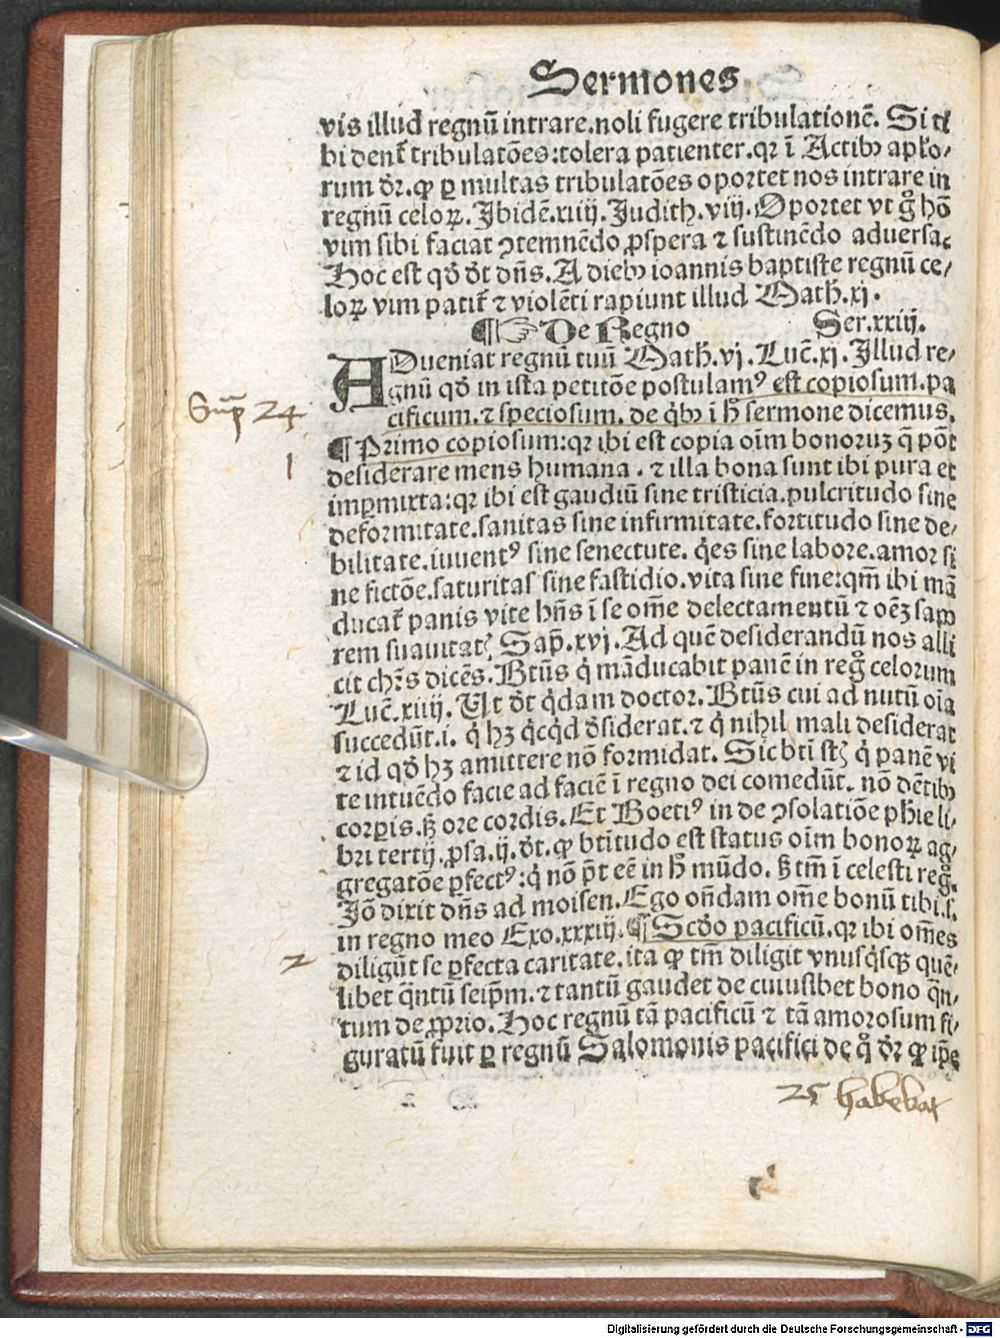 Sermones
vis illud regnũ intrare.noli fugere tribulationẽ. Si ti
bi denť tribulatões:tolera patienter.qꝛ ĩ Actibꝯ apľo⸗
rum dꝛ̃.ꝙ ꝑ multas tribulatões oportet nos intrare in
regnũ celoꝝ. Ibidẽ.xiiij. Judith. viij. Oportet vt g̊ hõ
vim sibi faciat ꝯtemnẽdo ꝓspera ⁊ sustinẽdo aduersa.
Hoc est qď dt̃ dñs. A diebꝯ ioannis baptiste regnũ ce⸗
loꝝ vim patiť ⁊ violẽti rapiunt illud Math̃.xj.
¶☞De Regno Ser.xxiij.
ADueniat regnũ tuũ Math̃.vj. Luc̃.xj. Illud re⸗
gnũ qď in ista petitõe postulamꝰ est copiosum.pa
Sup̃ 24
cificum.⁊ speciosum. de qͥbꝯ ĩ h̃ sermone dicemus.
¶ Primo copiosum:qꝛ ibi est copia oĩm bonoruꝫ q̃ põt
1
desiderare mens humana. ⁊ illa bona sunt ibi pura et
imꝑmixta:qꝛ ibi est gaudiũ sine tristicia.pulcritudo sine
deformitate.sanitas sine infirmitate.fortitudo sine de⸗
bilitate.iuuentꝰ sine senectute. qͥes sine labore.amor si
ne fictõe.saturitas sine fastidio.vita sine fine:qm̃ ibi mã
ducať panis vite hñs ĩ se om̃e delectamentũ ⁊ oẽꝫ sapo
rem suauitatꝭ Sap̃.xvj. Ad quẽ desiderandũ nos alli
cit chꝛ̃s dicẽs. Btũs qͥ mãducabit panẽ in reg̃ celorum
Luc̃.xiiij. Ut dt̃ qͥdam doctor. Btũs cui ad nutũ oĩa
succedũt.i. qͥ hꝫ qͥcqͥd dͤsiderat.⁊ qͥ nihil mali desiderat
⁊ id qď hꝫ amittere nõ formidat. Sic btĩ st̃ꝭ qͥ panẽ vi
te intuẽdo facie ad faciẽ ĩ regno dei comedũt. nõ dẽtibꝯ
corꝑis.sꝫ ore cordis. Et Boetiꝰ in de ꝯsolatiõe ph̃ie li⸗
bri tertij.ꝓsa.ij.dt̃.ꝙ btĩtudo est status oĩm bonoꝝ ag⸗
gregatõe ꝑfectꝰ:qͥ nõ p̃t eẽ in h̃ mũdo. sꝫ tm̃ ĩ celesti reg̃.
Iõ dixit dñs ad moisen. Ego oñdam om̃e bonũ tibi.s.
in regno meo Exo.xxxiij.¶ Scďo pacificũ.qꝛ ibi om̃es
2
diligũt se ꝑfecta caritate.ita ꝙ tm̃ diligit vnusqͥsqꝫ quẽ⸗
libet q̃ntũ seip̃m.⁊ tantũ gaudet de cuiuslibet bono q̃n⸗
tum de ꝓprio. Hoc regnũ tã pacificũ ⁊ tã amorosum fi⸗
guratũ fuit ꝑ regnũ Salomonis pacifici de q̊ dꝛ̃ ꝙ ip̃e
25 habebat
Digitalisierung gefördert durch die Deutsche Forschungsgemeinschaft - DFG